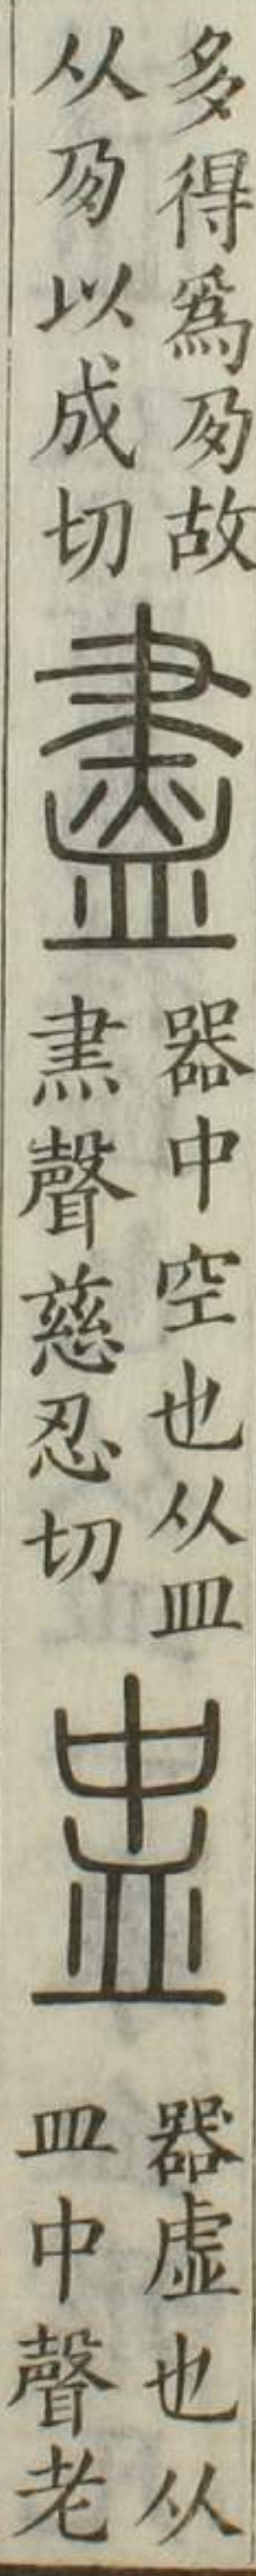 多得爲夃故
从夃以成切
盡
器中空也从皿
㶳聲慈忍切
盅
器虛也从
皿中聲老